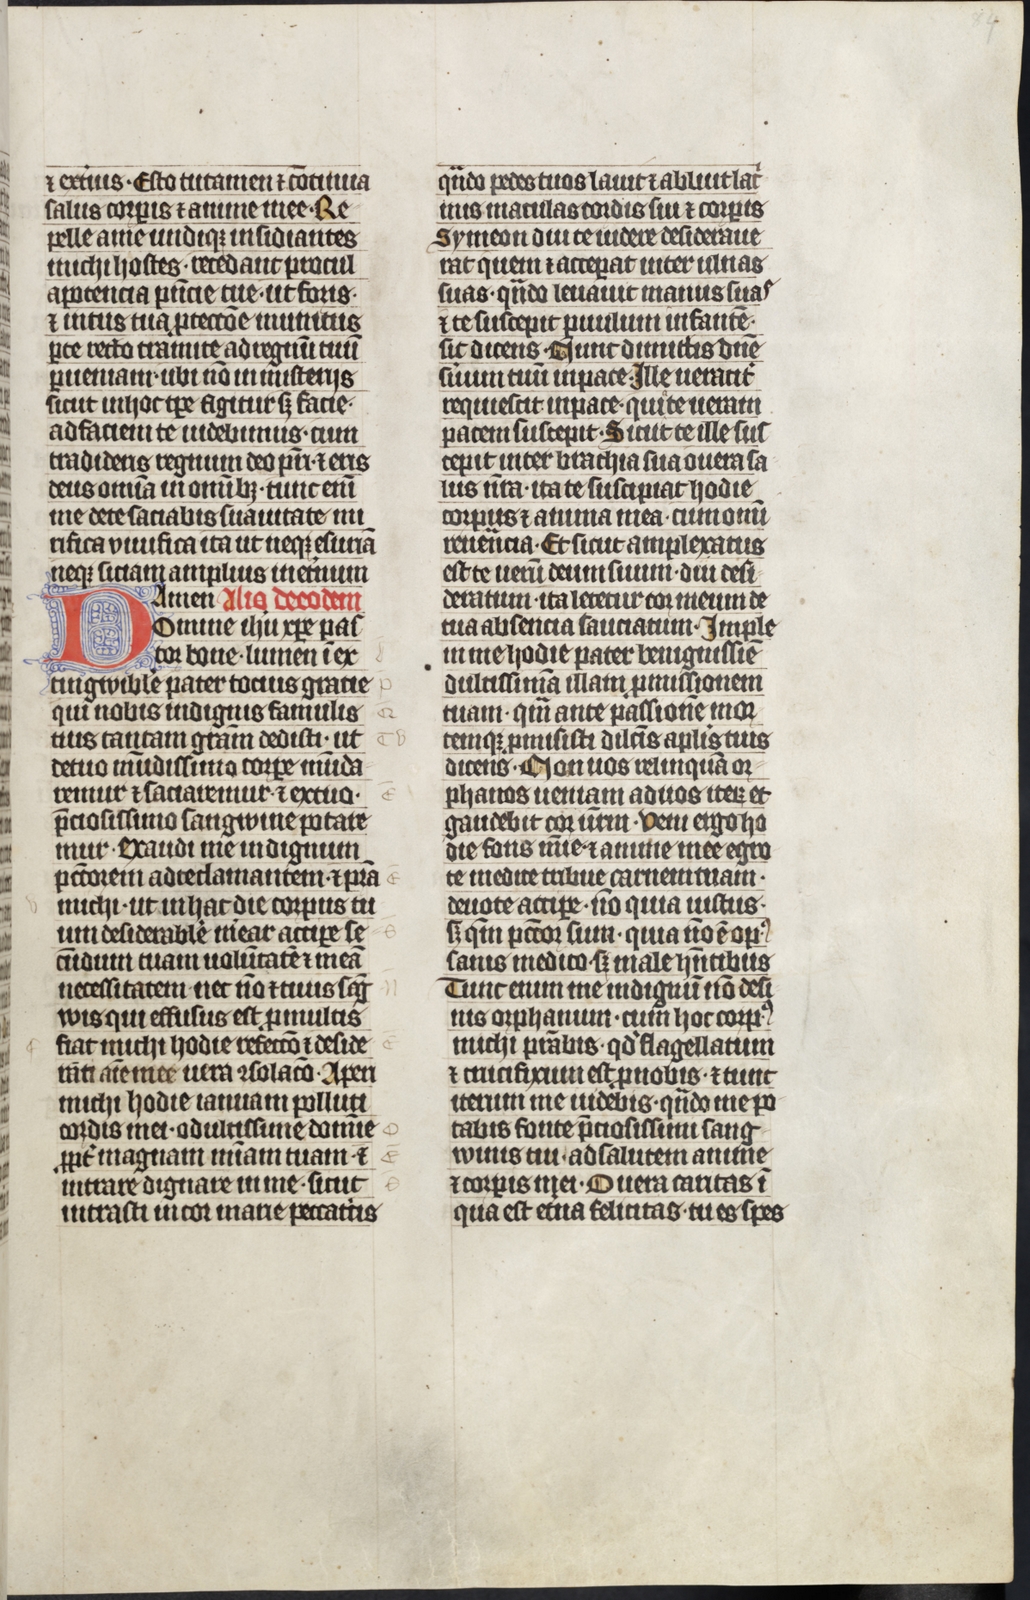 84
⁊ exteri⁹ · Esto tutamen ⁊ cōtinua
salus corporis ⁊ anime mee · Re
pelle a me undiqꝫ insidiantes
michi hostes · recedant procul
a potencia pn̄cie tue · ut foris ·
⁊ intus tua ꝓteccōe munitus
ꝑ te recto tramite ad regnū tuū
ꝑueniam · ubi nō in misterijs
sicut in hoc tp̄e agitur sꝫ facie ·
ad faciem te uidebimus · cum
tradideris regnum deo pr̄i · ⁊ eris
deus omīa in omībꝫ · tunc enī
me de te saciabis suauitate mi
rifica viuifica ita ut neqꝫ esuriā
neqꝫ siciam amplius in et̄num
Amen Alia de eodem
Domine ihū xp̄e pas
tor bone · lumen ī ex
tingwible pater tocius gracie
qui nobis indignis famulis
tuis tantam gr̄am dedisti · ut
de tuo mūdissimo corpe mūda
remur ⁊ saciaremur · ⁊ ex tuo ·
p̄ciosissimo sangwine potare
mur · Exaudi me indignum
pc̄corem ad te clamantem · ⁊ p̄sta
michi · ut in hac die corpus tu
um desiderabile ineat accipe se
cūdum tuam volūtatē ⁊ meā
necessitatem · nec nō ⁊ tuus sāg
wis qui effusus est ꝓ multis
fiat michi hodie refeccō ⁊ deside
rāti aīe mee vera ꝯsolacō · Aperi
michi hodie ianuam polluti
cordis mei · o dulcissime domīe
ꝓpt̄ magnam mīam tuam · ⁊
intrare dignare in me · sicut
intrasti in cor marie peccatris
qn̄do pedes tuos lauit ⁊ abluit lac̄
mis maculas cordis sui ⁊ corporis
Symeon diu te videre desideraue
rat quem ⁊ acceperat inter ulnas
suas · qn̄do leuauit manus suas
⁊ te suscepit ꝑuulum infantē ·
sic dicens · Nunc dimittis dn̄e
s̄uum tuū in pace · Ille veracit̄
requiescit in pace · qui te veram
pacem suscepit · Sicut te ille sus
cepit inter brachia sua o vera sa
lus n̄ra · ita te suscipiat hodie
corpus ⁊ anima mea · cum omī
reuēncia · Et sicut amplexatus
est te verū deum suum · diu desi
deratum · ita letetur cor meum de
tua absencia sauciatum · Imple
in me hodie pater benignissīe
dulcissimā illam ꝓmissionem
tuam · quā ante passionē mor
temqꝫ ꝓmisisti dilc̄is ap̄lis tuis
dicens · Non vos relinquā or
phanos veniam ad vos iteꝝ et
gaudebit cor ūrm · Veni ergo ho
die fons mīe · ⁊ anime mee egro
te medice tribue carnem tuam ·
deuote accipe · nō quia iustus ·
sꝫ qm̄ pc̄cor sum · quia nō ē op⁹
sanis medico · sꝫ male hn̄tibus
Tunc enim me indignū nō desi
nis orphanum · cum hoc corp⁹
michi p̄stabis · qd̄ flagellatum
⁊ crucifixum est ꝓ nobis · ⁊ tunc
iterum me videbis · qn̄do me po
tabis fonte p̄ciosissimi sang
winis tui · ad salutem anime
⁊ corporis mei · O vera caritas ī
qua est et̄na felicitas · tu es spes